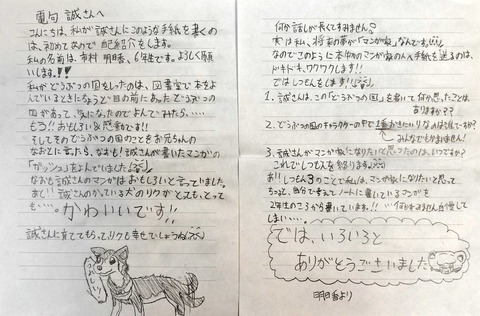 雷句 誠さんへ
こんにちは、私が誠さんにこのような手紙を書くの
は、初めてなので自己紹介をします。
私の名前は、 明香、6年生です。よろしく願
いします!!
私がどうぶつの国をしったのは、図書室で本をよ
んでいるときにちょうど目の前にあったどうぶつの
国があって、気になんたのでよんでみたら、……
もう!!おもしろい&感動です!!
そしてそのどうぶつの国のことをお兄ちゃんの
なおとに言ったら、なおも!誠さんが書いたマンガの
「ガッシュ」をよんでいました。
なおも誠さんのマンガはおもしろいと言っていました。
あと!!誠さんのかっている犬のリクがとても、とって
も……。かわいいです!!
誠さんに育ててもらって、リクも幸せでしょうね
うれしい!
何か話しが長くてすみません。
実は私、将来の夢が「マンガ家」なんです。
なのでこのように本物のマンガ家の人へ手紙を送るのは、
ドキドキ、ワクワクします!!
ではしつもんをします!
1. 誠さんは、この「どうぶつの国」を書いて何か思ったことは、
ありますか??
2. どうぶつの国のキャラクターの中で1番かきたいりなのは誰ですか?
みんなでもかまいません!
3. 誠さんがマンガ家になりたいと思ったのは、いつですか?
これでしつもんを終ります。
あ!!しつもん3のことで私は、マンガ家になりたいと思って
ちょっと、自分で考えてノートに書いているマンガを
2年生のころから書いています!! …何かすみませんが慢して
しまい……。
では、いろいろと
ありがとうございました
明香より